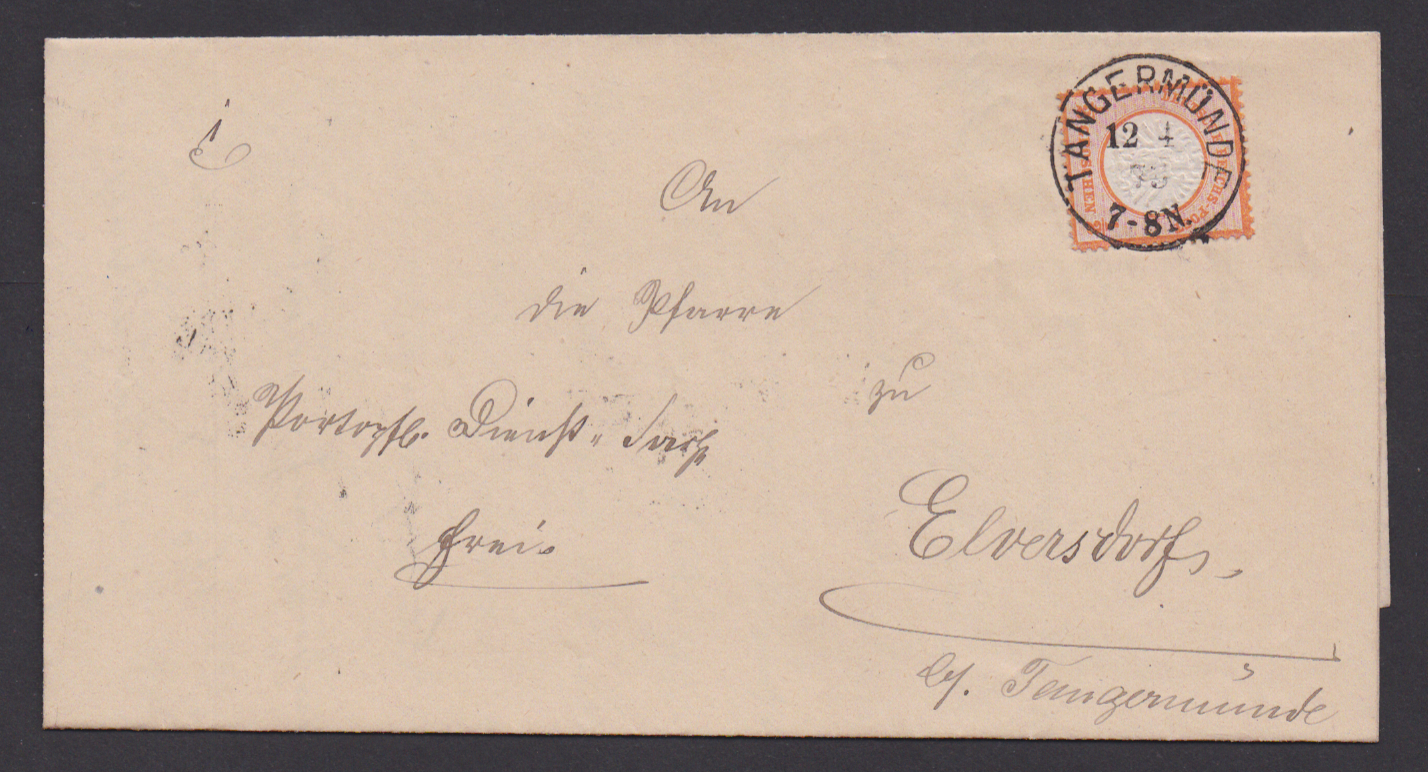 TANGERMÜNDE
12 4
75
7-8N.
An
die Pfarre
zu
Portopfl. Dienst-Sache
frei.
Elversdorf,
b/. Tangermünde